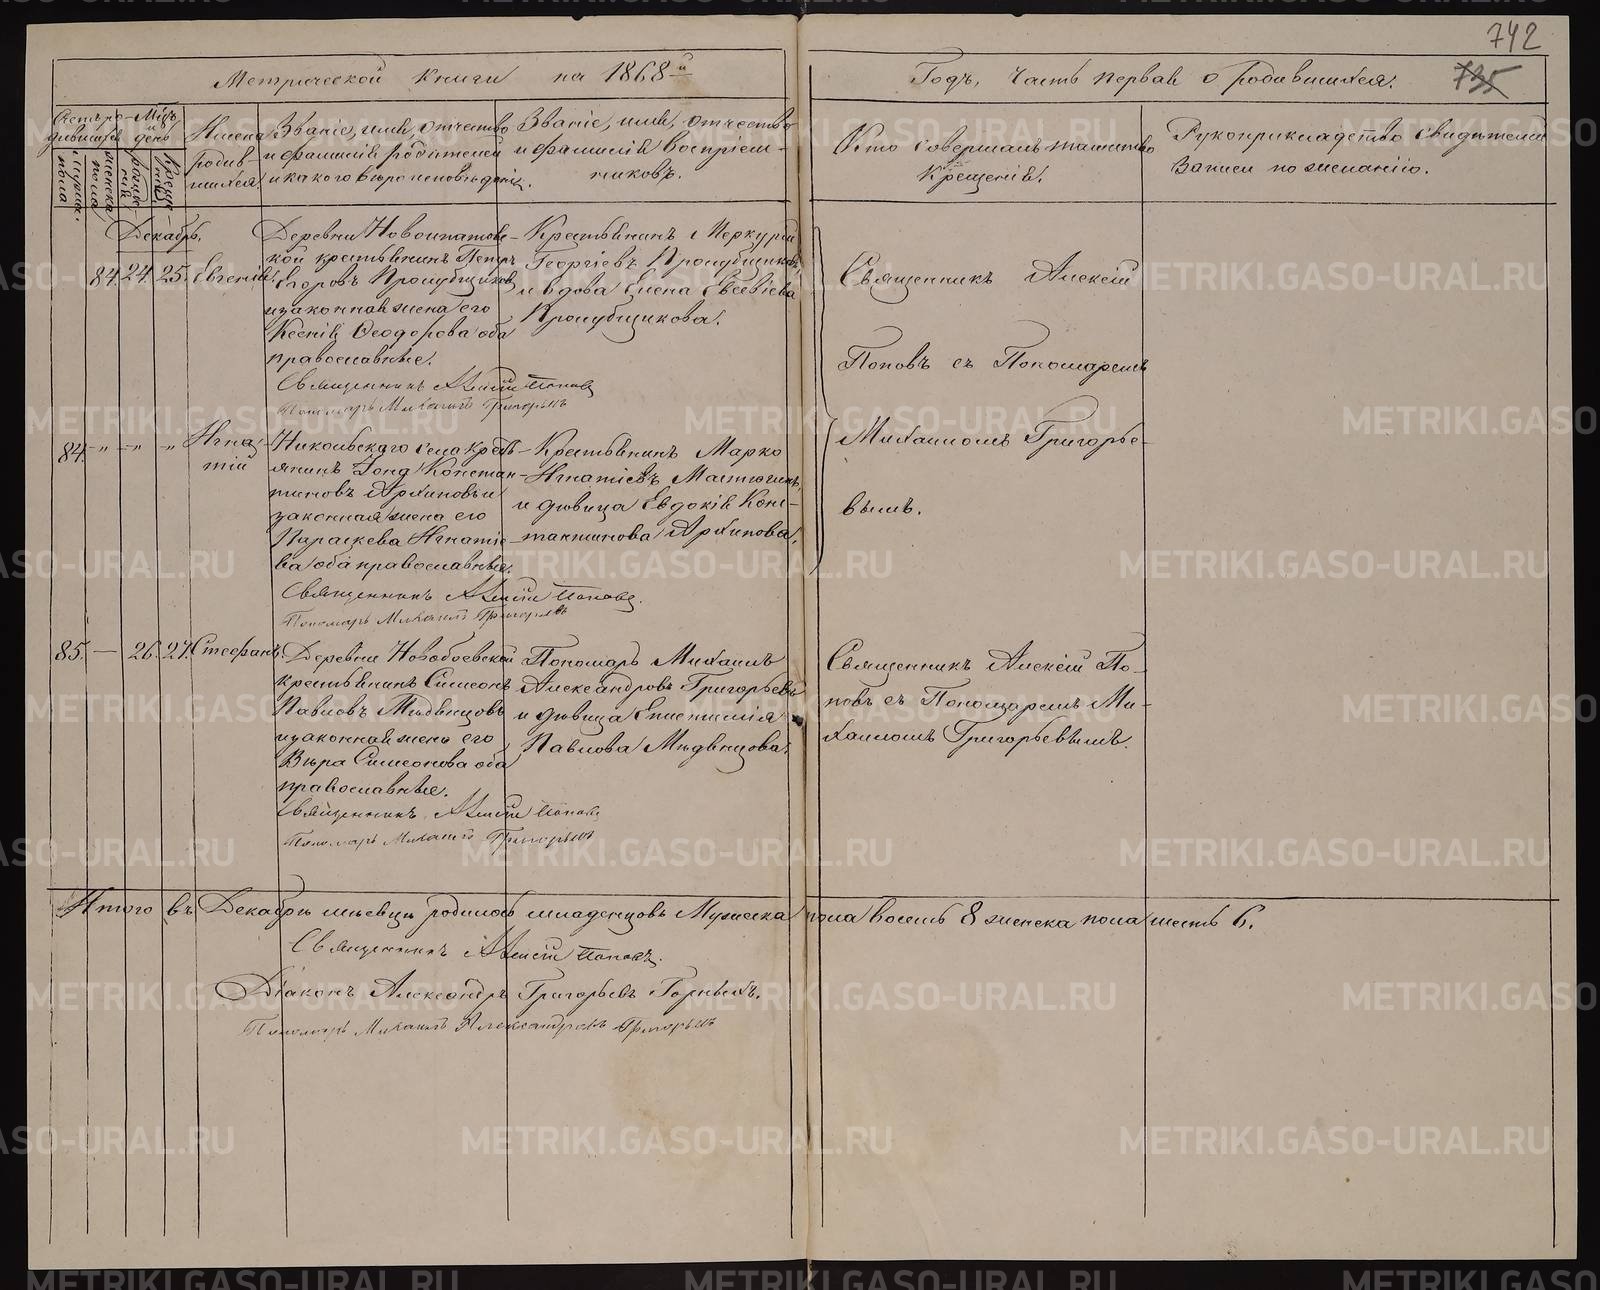 742
735
Метрической Книги на 1868й
Годъ, Часть первая о родившихся.
Счетъ родившихся
Мужеск. пола
женска пола
Мѣц. и день
рожденія
Крещенія
Имена родившихся
Званіе, имя, отчество
и фамилія родителей
и какого вѣроисповѣданія.
Званіе, имя, отчество
и фамилія воспріем-
никовъ.
Кто совершалъ таинство
Крещенія.
Рукоприкладство свидѣтелей
записи по желанію.
Декабрь.
84. 24. 25. Евгенія.
Деревни Новоипатов-
ской крестьянинъ Петръ
Егоровъ Пролубщиков
и законная жена его
Ксенія Ѳеодорова оба
православные.
Священникъ Алексій Поповъ
Пономарь Михаилъ Григорьевъ
Крестьянинъ Меркурій
Георгіевъ Пролубщиковъ,
и вдова Елена Евсевіева
Пролубщикова.
Священникъ Алексій
Поповъ съ Пономаремъ
Михаиломъ Григорье-
вымъ.
84. -„- -„- „ Игна-
тій
Никольскаго села крестъ-
янинъ Іона Констан-
тиновъ Архиповъ и
законная жена его
Параскева Игнатіе-
ва оба православные.
Священникъ Алексій Поповъ.
Пономарь Михаилъ Григорьевъ
Крестьянинъ Марко
Игнатіевъ Малюгинъ,
и дѣвица Евдокія Конс-
тантинова Архипова.
85. — 26. 27. Стефанъ.
Деревни Новобоевской
крестьянинъ Симеонъ
Павловъ Мѣдвѣцовъ
и законная жена его
Вѣра Симеонова оба
православные.
Священникъ Алексій Поповъ
Пономарь Михаилъ Григорьевъ
Пономарь Михаилъ
Александровъ Григорьевъ
и дѣвица Епистимія
Павлова Мѣдвѣцова.
Священникъ Алексій По-
повъ съ Пономаремъ Ми-
хаиломъ Григорьевымъ.
Итого въ Декабрѣ мѣсяцѣ родилось младенцовъ Мужеска пола восемь 8 женска пола шесть 6.
Священникъ Алексій Поповъ.
Діаконъ Александръ Григорьевъ Горныхъ.
Пономарь Михаилъ Александровъ Григорьевъ
METRIKI.GASO-URAL.RU